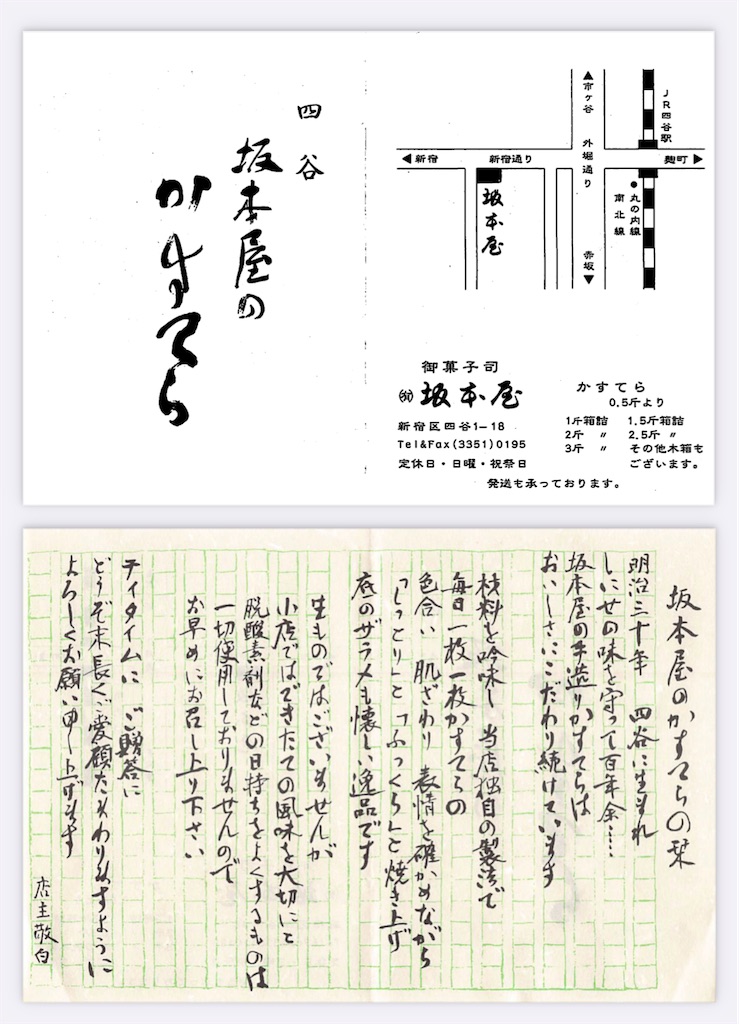 四谷
坂本屋の
かすてら
▲市ヶ谷
外堀通り
赤坂▼
JR四谷駅
◀新宿
新宿通り
麹町▶
坂本屋
●丸の内線
南北線
御菓子司
㈲坂本屋
新宿区四谷1-18
Tel&Fax(3351)0195
定休日・日曜・祝祭日
かすてら
0.5斤より
1斤箱詰 1.5斤箱詰
2斤 〃 2.5斤 〃
3斤 〃 その他木箱も
ございます。
発送も承っております。
坂本屋のかすてらの栞
明治三十年 四谷に生まれ
しにせの味を守って百年余……
坂本屋の手造りかすてらは
おいしさにこだわり続けています
材料を吟味し 当店独自の製法で
毎日一枚一枚かすてらの
色合い 肌ざわり 表情を確かめながら
「しっとり」と「ふっくら」と焼き上げ
底のザラメも懐しい逸品です
生ものではございませんが
小店ではできたての風味を大切にと
脱酸素剤などの日持ちをよくするものは
一切使用しておりませんので
お早めにお召し上り下さい
ティタイムに ご贈答に
どうぞ末長くご愛顧たまわりますように
よろしくお願い申し上げます
店主敬白